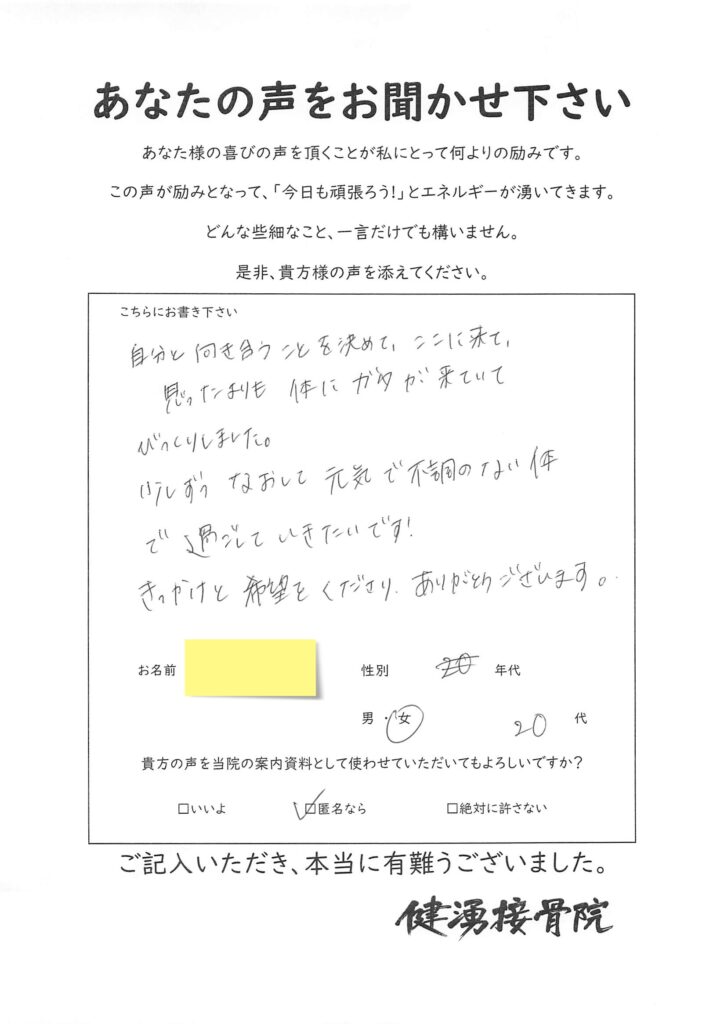 あなたの声をお聞かせ下さい
あなた様の喜びの声を頂くことが私にとって何よりの励みです。
この声が励みとなって、「今日も頑張ろう!」とエネルギーが湧いてきます。
どんな些細なこと、一言だけでも構いません。
是非、貴方様の声を添えてください。
こちらにお書き下さい
自分と向き合うことを決めて、ここに来て、
思ったよりも 体に ガタが 来ていて
びっくりしました。
少しずつ なおして 元気で不調のない体
で 過ごして いきたいです!
きっかけと 希望を くださり、ありがとうございます。
お名前 性別 20 年代
男・女 20 代
貴方の声を当院の案内資料として使わせていただいてもよろしいですか?
□いいよ ☑匿名なら □絶対に許さない
ご記入いただき、本当に有難うございました。
健湧接骨院